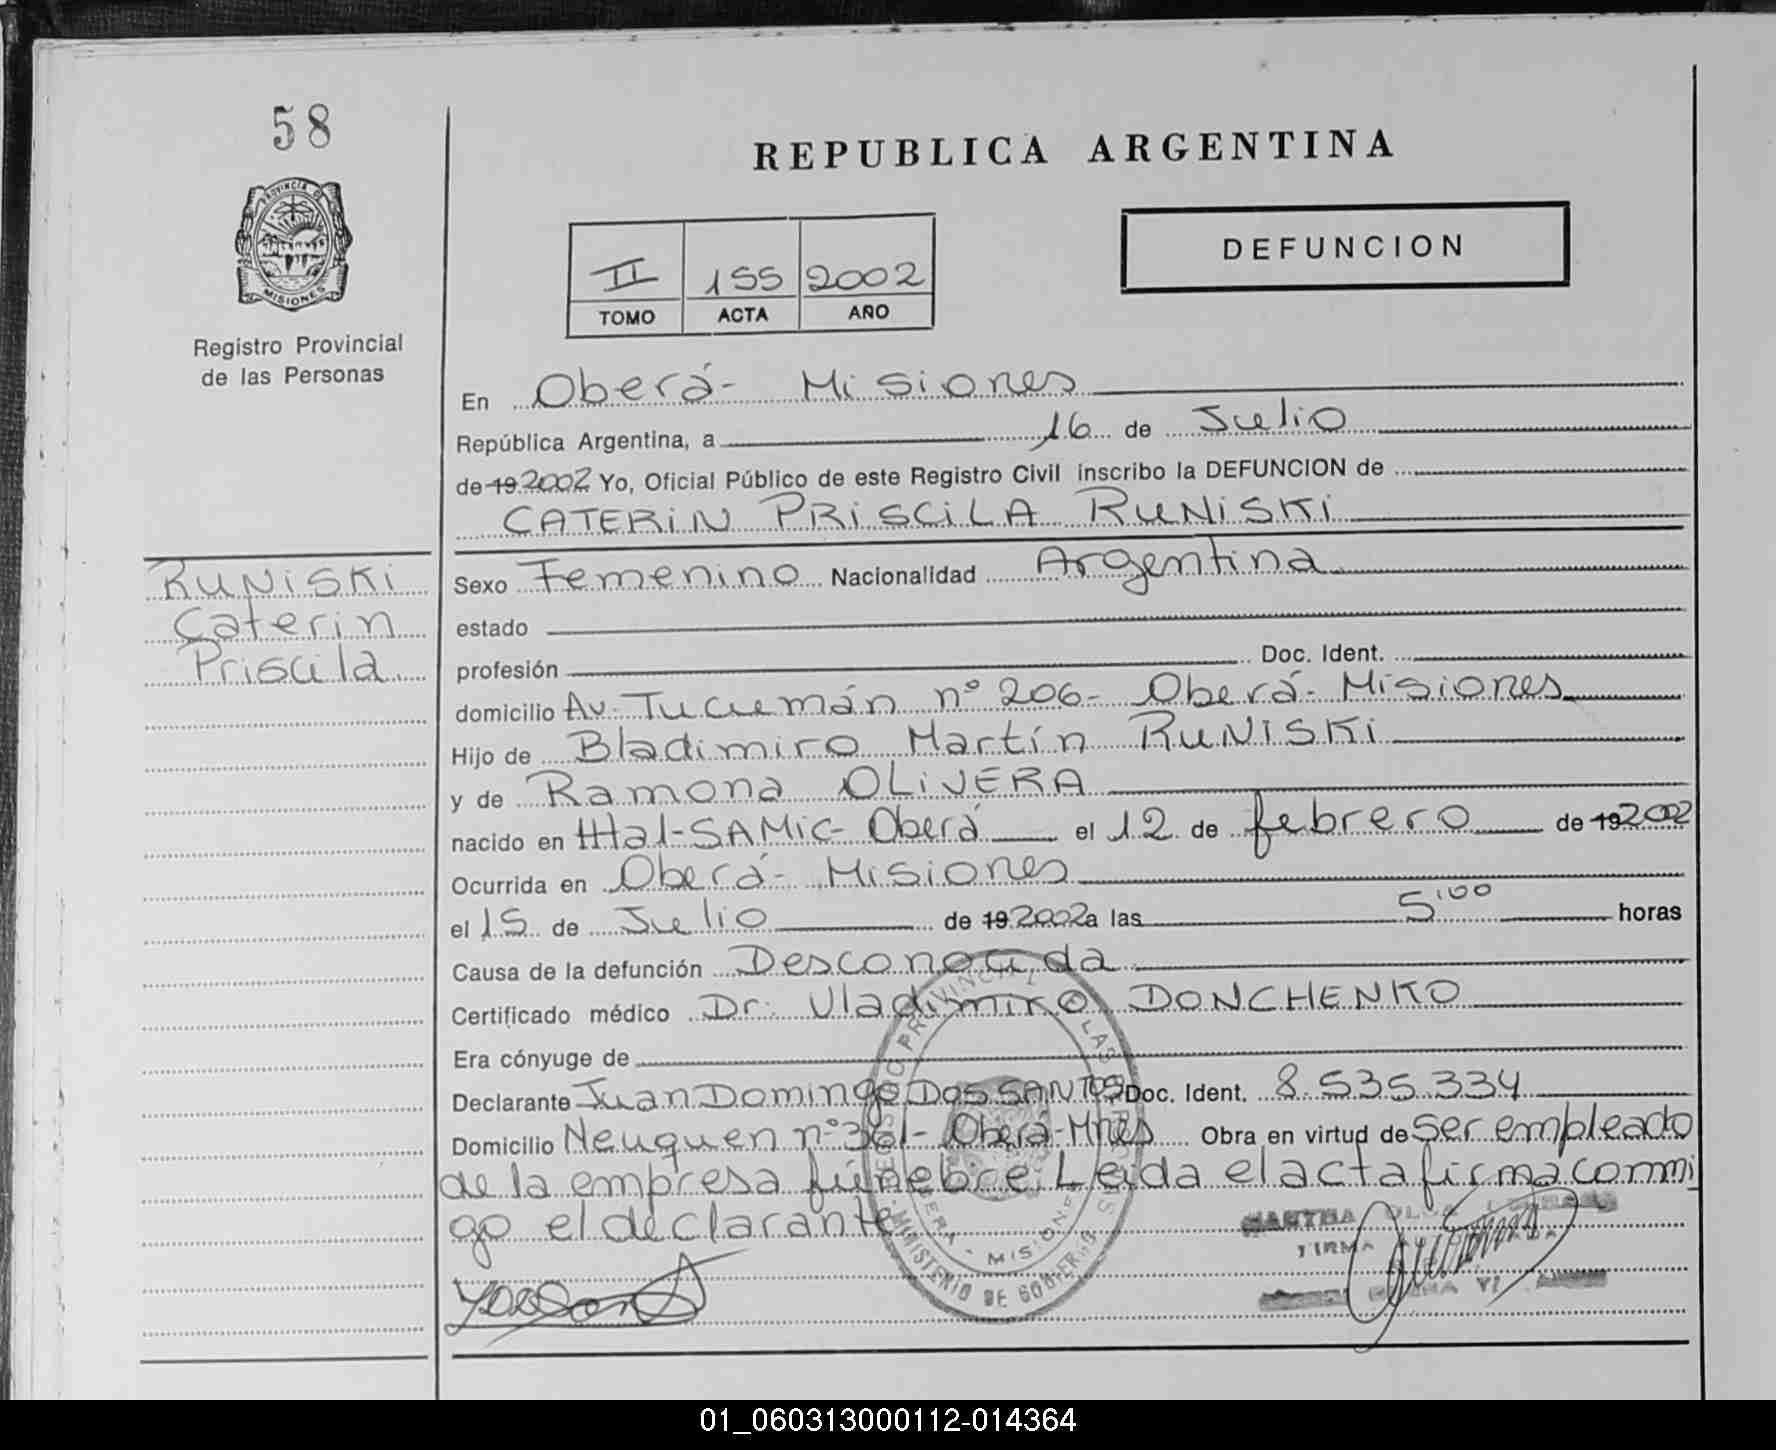 58
PROVINCIA DE
MISIONES
Registro Provincial
de las Personas
RUNISKI
Caterin
Priscila
REPUBLICA ARGENTINA
II 155 2002
TOMO ACTA AÑO
DEFUNCION
En Oberá- Misiones
República Argentina, a 16 de Julio
de 19 2002 Yo, Oficial Público de este Registro Civil inscribo la DEFUNCION de
CATERIN PRISCILA RUNISKI
Sexo Femenino Nacionalidad Argentina
estado
profesión Doc. Ident.
domicilio Av. Tucumán nº 206- Oberá- Misiones
Hijo de Bladimiro Martín RUNISKI
y de Ramona OLIVERA
nacido en Htal-SAMIC- Oberá el 12 de febrero de 19 2002
Ocurrida en Oberá- Misiones
el 15 de Julio de 19 2002 a las 5'00 horas
Causa de la defunción Desconocida
Certificado médico Dr. Vladimiro DONCHENKO
Era cónyuge de
Declarante Juan Domingo DOS SANTOS Doc. Ident. 8.535.334
Domicilio Neuquen nº 361- Oberá-Mnes Obra en virtud de ser empleado
de la empresa fúnebre. Leida el acta firma conmi
go el declarante
MINISTERIO DE GOBIERNO
MISIONES
MARTHA
FIRMA
01_060313000112-014364